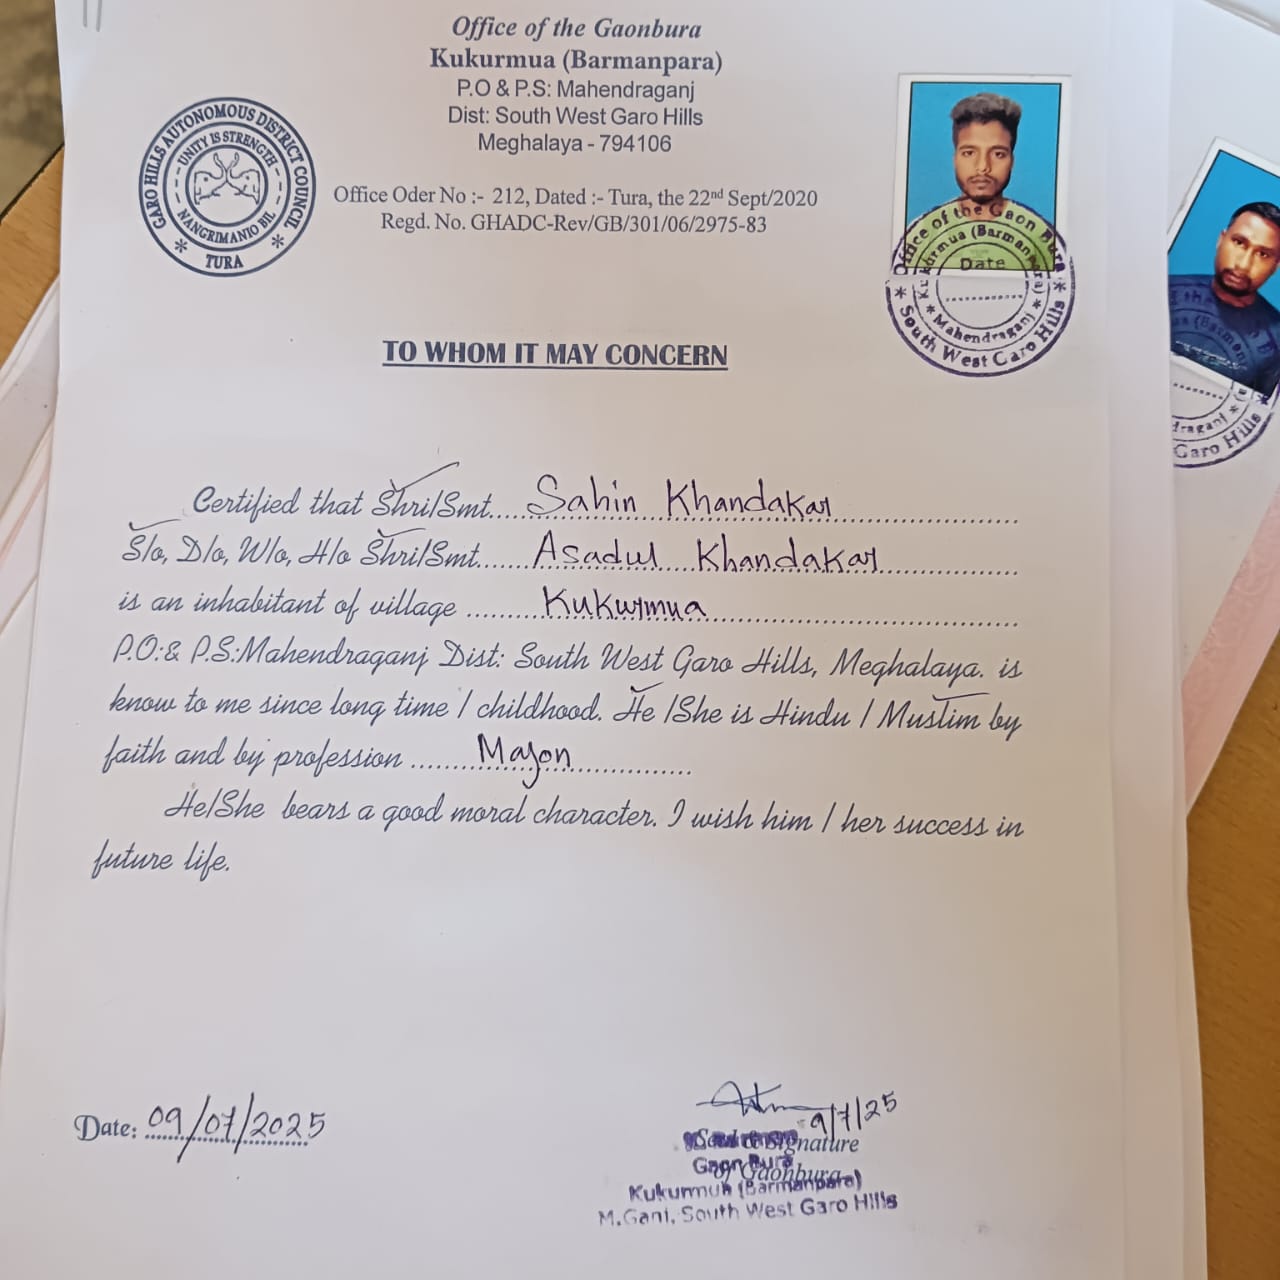 Office of the Gaonbura
Kukurmua (Barmanpara)
P.O & P.S: Mahendraganj
Dist: South West Garo Hills
Meghalaya - 794106
GARO HILLS AUTONOMOUS DISTRICT COUNCIL
UNITY IS STRENGTH
NANGRIMANIO BIL
TURA
Office Oder No :- 212, Dated :- Tura, the 22nd Sept/2020
Regd. No. GHADC-Rev/GB/301/06/2975-83
Office of the Gaon Bura
Kukurmua (Barmanpara)
Date
Mahendraganj
South West Garo Hills
Garo Hills
TO WHOM IT MAY CONCERN
Certified that Shri/Smt.... Sahin Khandakar
S/o, D/o, W/o, H/o Shri/Smt....... Asadul Khandakar
is an inhabitant of village ....... Kukurmua
P.O:& P.S:Mahendraganj Dist: South West Garo Hills, Meghalaya. is
know to me since long time / childhood. He /She is Hindu / Muslim by
faith and by profession ....... Mason
He/She bears a good moral character. I wish him / her success in
future life.
Date: 09/07/2025
9/7/25
Seal & Signature
of Gaonbura
Gaon Bura
Kukurmua (Barmanpara)
M.Ganj, South West Garo Hills